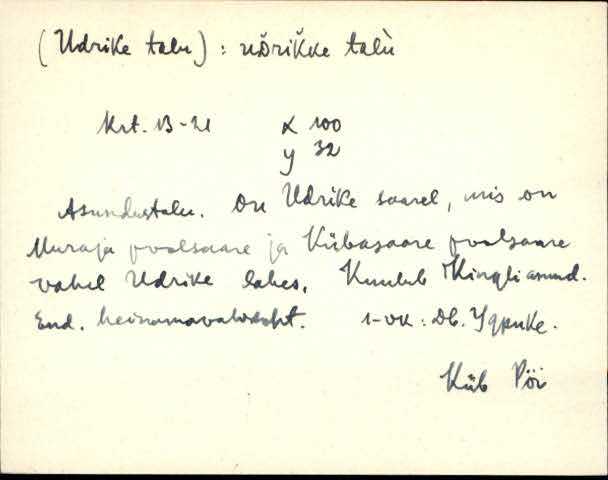 (Udrike talu) : uᴅ̀riǩke talù
krt. 13-21 x 100
y 32
Asundustalu. On Udrike saarel, mis on
Muraja poolsaare ja Kübasaare poolsaare
vahel Udrike lahes. Kuulub Kingli asund.
End. heinamaavahtkoht. 1-vk : Дв. Удрике.
Küb Pöi